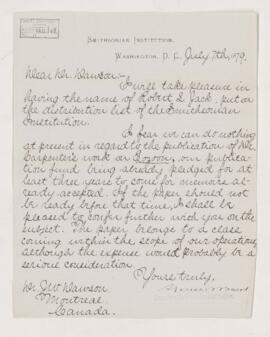 SMITHSONIAN INSTITUTION,
WASHINGTON, D. C., July 7th, 1879.
Dear Mr. Dawson:-
I will take pleasure in
having the name of Robert L. Jack, put on
the distribution list of the Smithsonian
Institution.
I fear we can do nothing
at present in regard to the publication of Mr.
Carpenter's work on, our publica-
tion fund being already pledged for at
least three years to come for memoirs al-
ready accepted. If the paper should not
be ready before that time, I shall be
pleased to confer further with you on the
subject. The paper belongs to a class
coming within the scope of our operations
although the expense would probably be a
serious consideration.
Yours truly,
Mr. J W Dawson
Montreal
Canada.